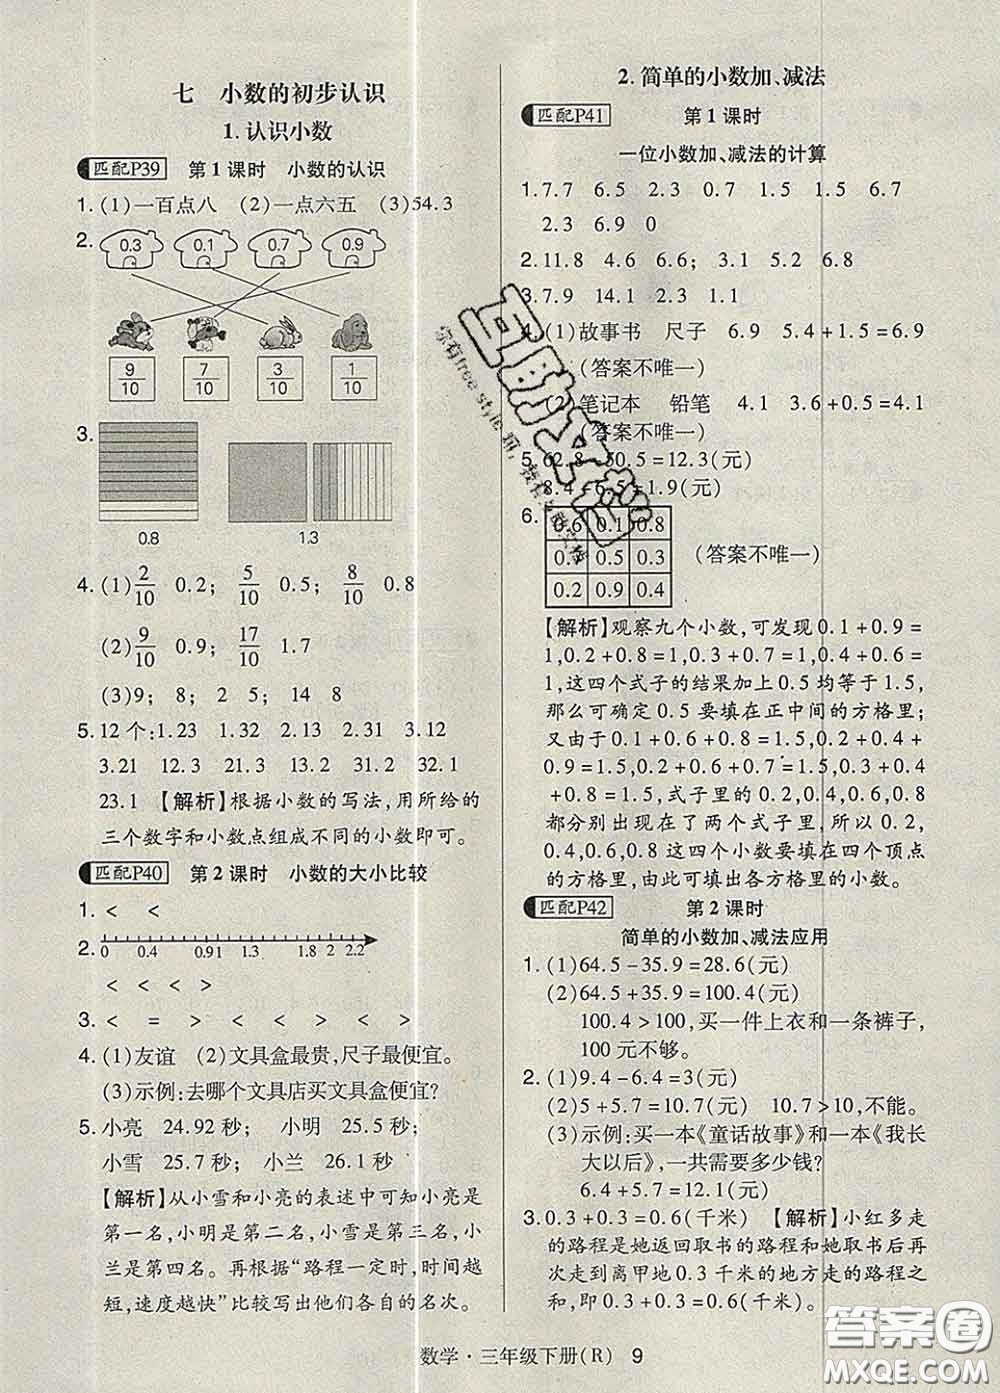 七 小数的初步认识
1.认识小数
匹配P39 第1课时 小数的认识
1.(1)一百点八 (2)一点六五 (3)54.3
2. 0.3 0.1 0.7 0.9
9/10 7/10 3/10 1/10
3.
0.8 1.3
4.(1)2/10 0.2; 5/10 0.5; 8/10 0.8
(2)9/10 0.9; 17/10 1.7
(3)9; 8; 2; 5; 14 8
5.12个:1.23 1.32 2.13 2.31 3.12
3.21 12.3 13.2 21.3 31.2 32.1
23.1 【解析】根据小数的写法,用所给的
三个数字和小数点组成不同的小数即可。
匹配P40 第2课时 小数的大小比较
1. < < >
2. 0 0.4 0.9 1 1.3 1.8 2 2.2
< < < >
3. < = > < < < > <
4.(1)友谊 (2)文具盒最贵,尺子最便宜。
(3)示例:去哪个文具店买文具盒便宜?
5.小亮 24.92秒; 小明 25.5秒;
小雪 25.7秒; 小兰 26.1秒
【解析】从小雪和小亮的表述中可知小亮是
第一名,小明是第二名,小雪是第三名,小
兰是第四名。再根据“路程一定时,时间越
短,速度越快”比较写出他们各自的名次。
2.简单的小数加、减法
匹配P41 第1课时
一位小数加、减法的计算
1.7.7 6.5 2.3 0.7 1.5 1.5 6.7
2.3 6.9 0
2.11.8 4.6 6.6; 3.1 5.2 6.8
3.7.9 14.1 2.3 1.9
4.(1)故事书 尺子 6.9 5.4+1.5=6.9
(答案不唯一)
(2)笔记本 铅笔 4.1 3.6+0.5=4.1
(答案不唯一)
5.62.8-50.5=12.3(元)
8.4-6.5=1.9(元)
6. 0.6 0.1 0.8
0.5 0.3 (答案不唯一)
0.2 0.9 0.4
【解析】观察九个小数,可发现0.1+0.9=
1,0.2+0.8=1,0.3+0.7=1,0.4+0.6=
1,这四个式子的结果加上0.5均等于1.5,
那么可确定0.5要填在正中间的方格里;
又由于0.1+0.6+0.8=1.5,0.2+0.4+
0.9=1.5,0.2+0.6+0.7=1.5,0.3+0.4+
0.8=1.5,式子里的0.2,0.4,0.6,0.8
都分别出现在了两个式子里,所以0.2,
0.4,0.6,0.8这四个小数要填在四个顶点
的方格里,由此可填出各方格里的小数。
匹配P42 第2课时
简单的小数加、减法应用
1.(1)64.5-35.9=28.6(元)
(2)64.5+35.9=100.4(元)
100.4>100,买一件上衣和一条裤子,
100元不够。
2.(1)9.4-6.4=3(元)
(2)5+5.7=10.7(元) 10.7>10,不能。
(3)示例:买一本《童话故事》和一本《我长
大以后》,一共需要多少钱?
6.4+5.7=12.1(元)
3.0.3+0.3=0.6(千米) 【解析】小红多走
的路程是她返回取书的路程和她取书后再
次走到离甲地0.3千米的地方走的路程之
和,即0.3+0.3=0.6(千米)。
数学·三年级下册(R) 9
互助文档
答案圈
MXQE.COM